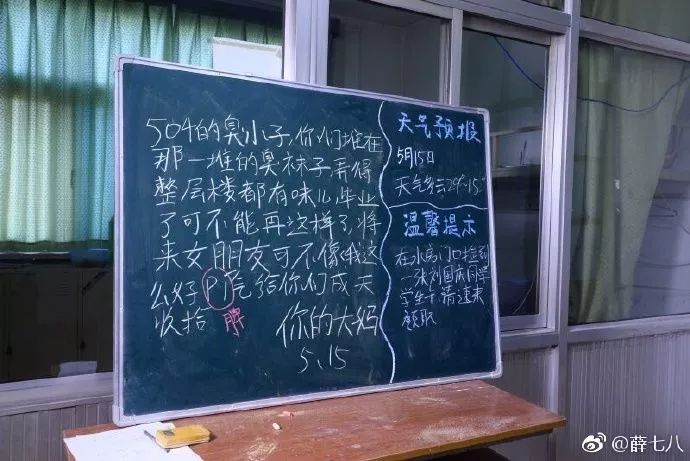 504的臭小子,你们堆在
那一堆的臭袜子弄得
整层楼都有味儿,毕业
了可不能再这样了,将
来女朋友可不像俄这
么好PI气给你们成天
收拾 脾
你的大妈
5.15
天气预报
5月15日
天气多云29°~15°
温馨提示
在水房门口捡到
一张刘国庆同学
学生卡 请速来
领取
@薛七八